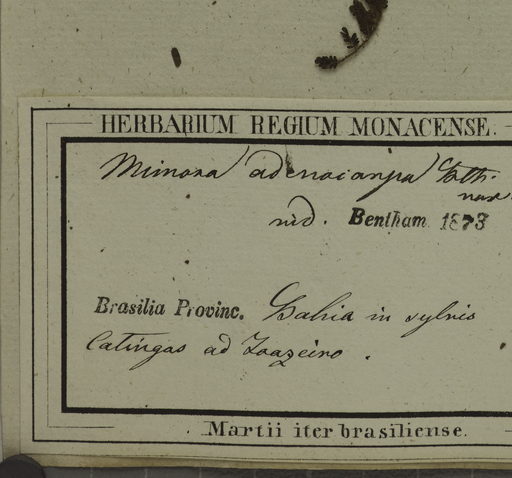 HERBARIUM REGIUM MONACENSE.
Mimosa adenocarpa Bth.
vid. Bentham 1873
Brasilia Provinc. Bahia in sylvis
Catingas ad Joazeiro.
Martii iter brasiliense.